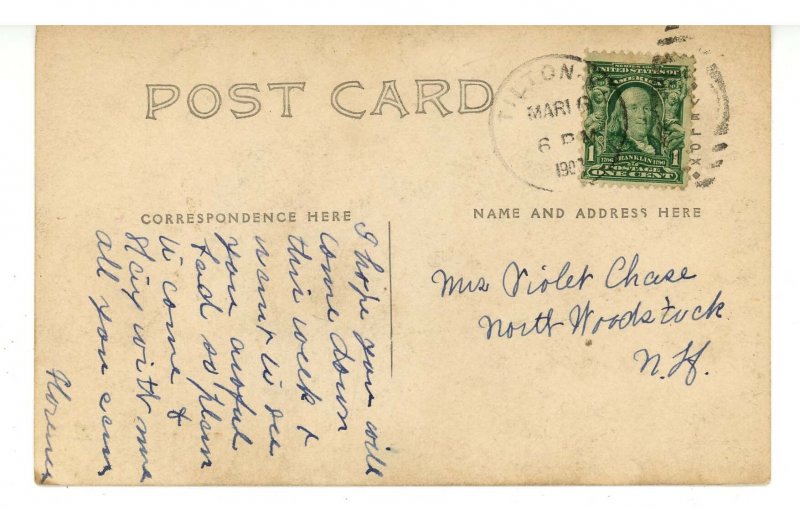 POST CARD
TILTON
MAR 16
6 P M
190
UNITED STATES OF
AMERICA
1 FRANKLIN 1
POSTAGE
ONE CENT
VELOX
CORRESPONDENCE HERE
NAME AND ADDRESS HERE
I hope you will
come down
this week &
want to see
you awful
bad so plan
to come &
stay with me
all you can
Florence
Violet Chase
North Woodstock
N.H.